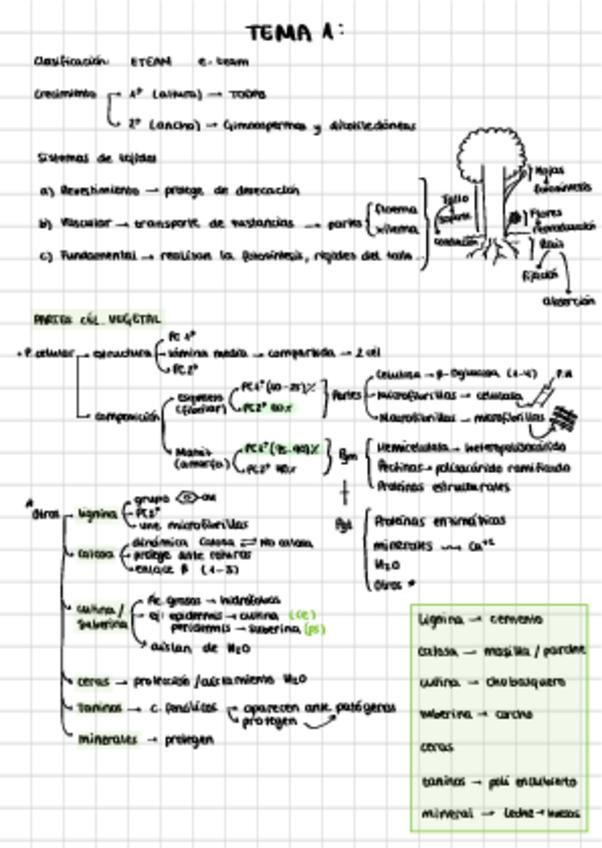 TEMA 1:
Clasificación ETEAM e-team
Crecimiento 1º (altura) → TODAS
2º (ancho) → Gimnospermas y dicotiledóneas
Sistemas de tejidos
a) Revestimiento → protege de desecación
b) Vascular → transporte de sustancias → partes
floema
xilema
c) Fundamental → realizan la fotosíntesis, rigidez del tallo
Tallo
soporte
conducción
Hojas
fotosíntesis
Flores
reproducción
Raíz
fijación
absorción
PARTES CÉL. VEGETAL
• P. celular estructura PC 1º
lámina media → compartida → 2 cél
PC 2º
composición esqueleto (fibrilar)
PC1º (10-25)%
PC2º 60%
Partes
Celulosa → β-D glucosa (1-4)
Microfibrillas → celulosa
Macrofibrillas → microfibrillas
Matriz (amorfa)
PC1º (75-90)%
PC2º 40%
Hemicelulosa → heteropolisacárido
Pectinas → polisacárido ramificado
Proteínas estructurales
Proteínas enzimáticas
minerales Ca⁺²
H₂O
Otros *
* Otros
lignina
grupo OH
PC2º
une microfibrillas
calosa
dinámica Calosa ⇌ No calosa
protege ante roturas
enlace β (1-3)
cutina / suberina
Ac. grasos → hidrófobos
ej: epidermis → cutina (CE)
peridermis → suberina (PS)
aislan de H₂O
ceras → protección / aislamiento H₂O
taninos → c. fenólicos aparecen ante patógenos
protegen
minerales → protegen
Lignina → cemento
calosa → masilla / parche
cutina → chubasquero
suberina → corcho
ceras
taninos → poli encubierto
mineral → leche → huesos